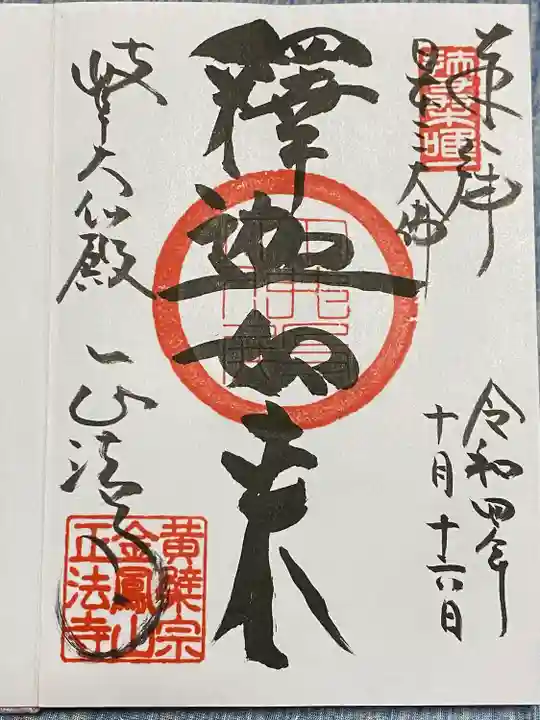 奉拝
日本三大佛
令和四年
十月十六日
釋迦如来
岐阜大仏殿
正法寺
黄檗宗
金鳳山
正法寺